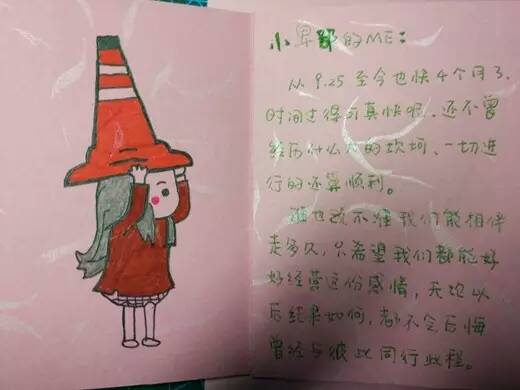 小卑鄙的ME：
从9.25至今也快4个月了,
时间过得可真快啊,还不曾
经历什么大的坎坷、一切进
行的还算顺利。
谁也说不准我们能相伴
走多久,只希望我们都能好
好经营这份感情,无论以
后结果如何,都不会后悔
曾经与彼此同行此程。